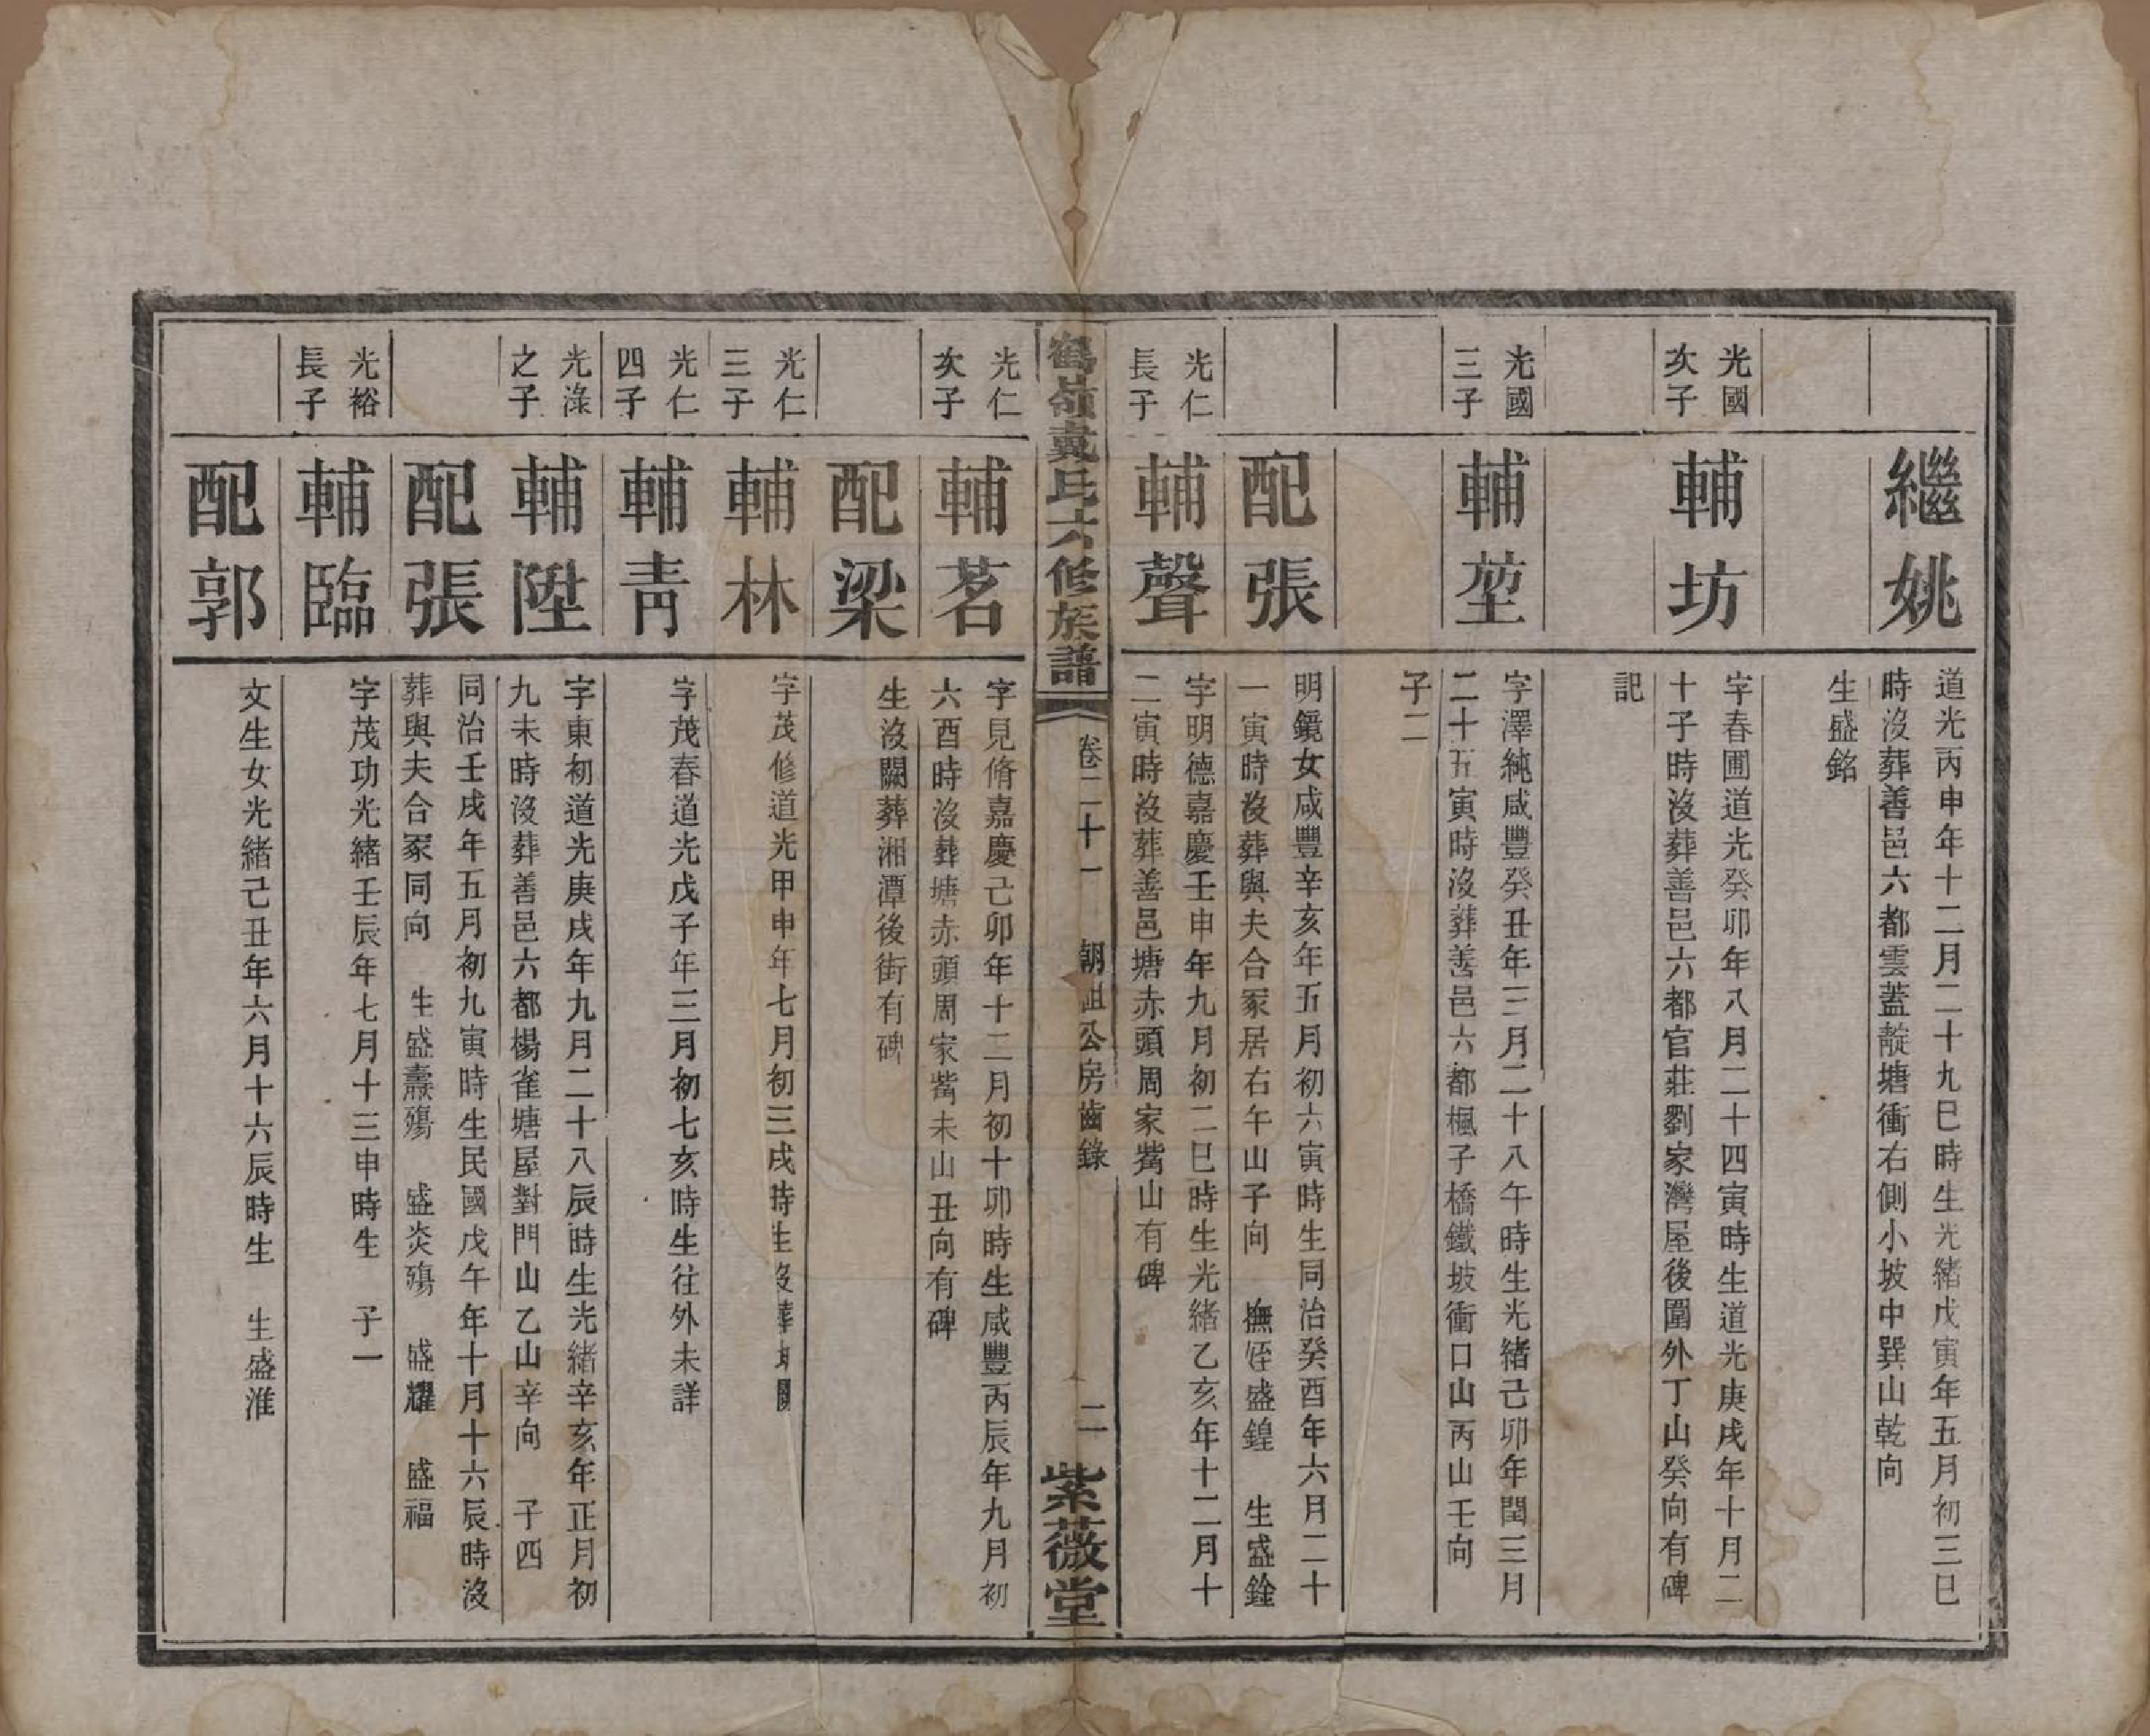 繼姚
道光丙申年十二月二十九巳時生光緒戊寅年五月初三巳
時沒葬善邑六都雲蓋靛塘衝右側小坡中巽山乾向
生盛銘
光國
次子
輔坊
字春圃道光癸卯年八月二十四寅時生道光庚戌年十月二
十子時沒葬善邑六都官莊劉家灣屋後圍外丁山癸向有碑
記
光國
三子
輔堃
字澤純咸豐癸丑年三月二十八午時生光緒己卯年閏三月
二十五寅時沒葬善邑六都楓子橋鐵坡衝口山丙山壬向
子二
配張
明鏡女咸豐辛亥年五月初六寅時生同治癸酉年六月二十
一寅時沒葬與夫合冢居右午山子向 撫姪盛鍠 生盛銓
光仁
長子
輔聲
字明德嘉慶壬申年九月初二巳時生光緒乙亥年十二月十
二寅時沒葬善邑塘赤頭周家嘴山有碑
鶴嶺戴氏六修族譜
卷二十一 朝組公房齒錄
二
紫薇堂
光仁
次子
輔茗
字見脩嘉慶己卯年十二月初十卯時生咸豐丙辰年九月初
六酉時沒葬塘赤頭周家嘴未山丑向有碑
配梁
生沒闕葬湘潭後街有碑
光仁
三子
輔林
字茂修道光甲申年七月初三戌時生沒葬均闕
光仁
四子
輔青
字茂春道光戊子年三月初七亥時生往外未詳
光淥
之子
輔陞
字東初道光庚戌年九月二十八辰時生光緒辛亥年正月初
九未時沒葬善邑六都楊雀塘屋對門山乙山辛向 子四
配張
同治壬戌年五月初九寅時生民國戊午年十月十六辰時沒
葬與夫合冢同向 生盛壽殤 盛炎殤 盛耀 盛福
光裕
長子
輔臨
字茂功光緒壬辰年七月十三申時生 子一
配郭
文生女光緒己丑年六月十六辰時生 生盛淮